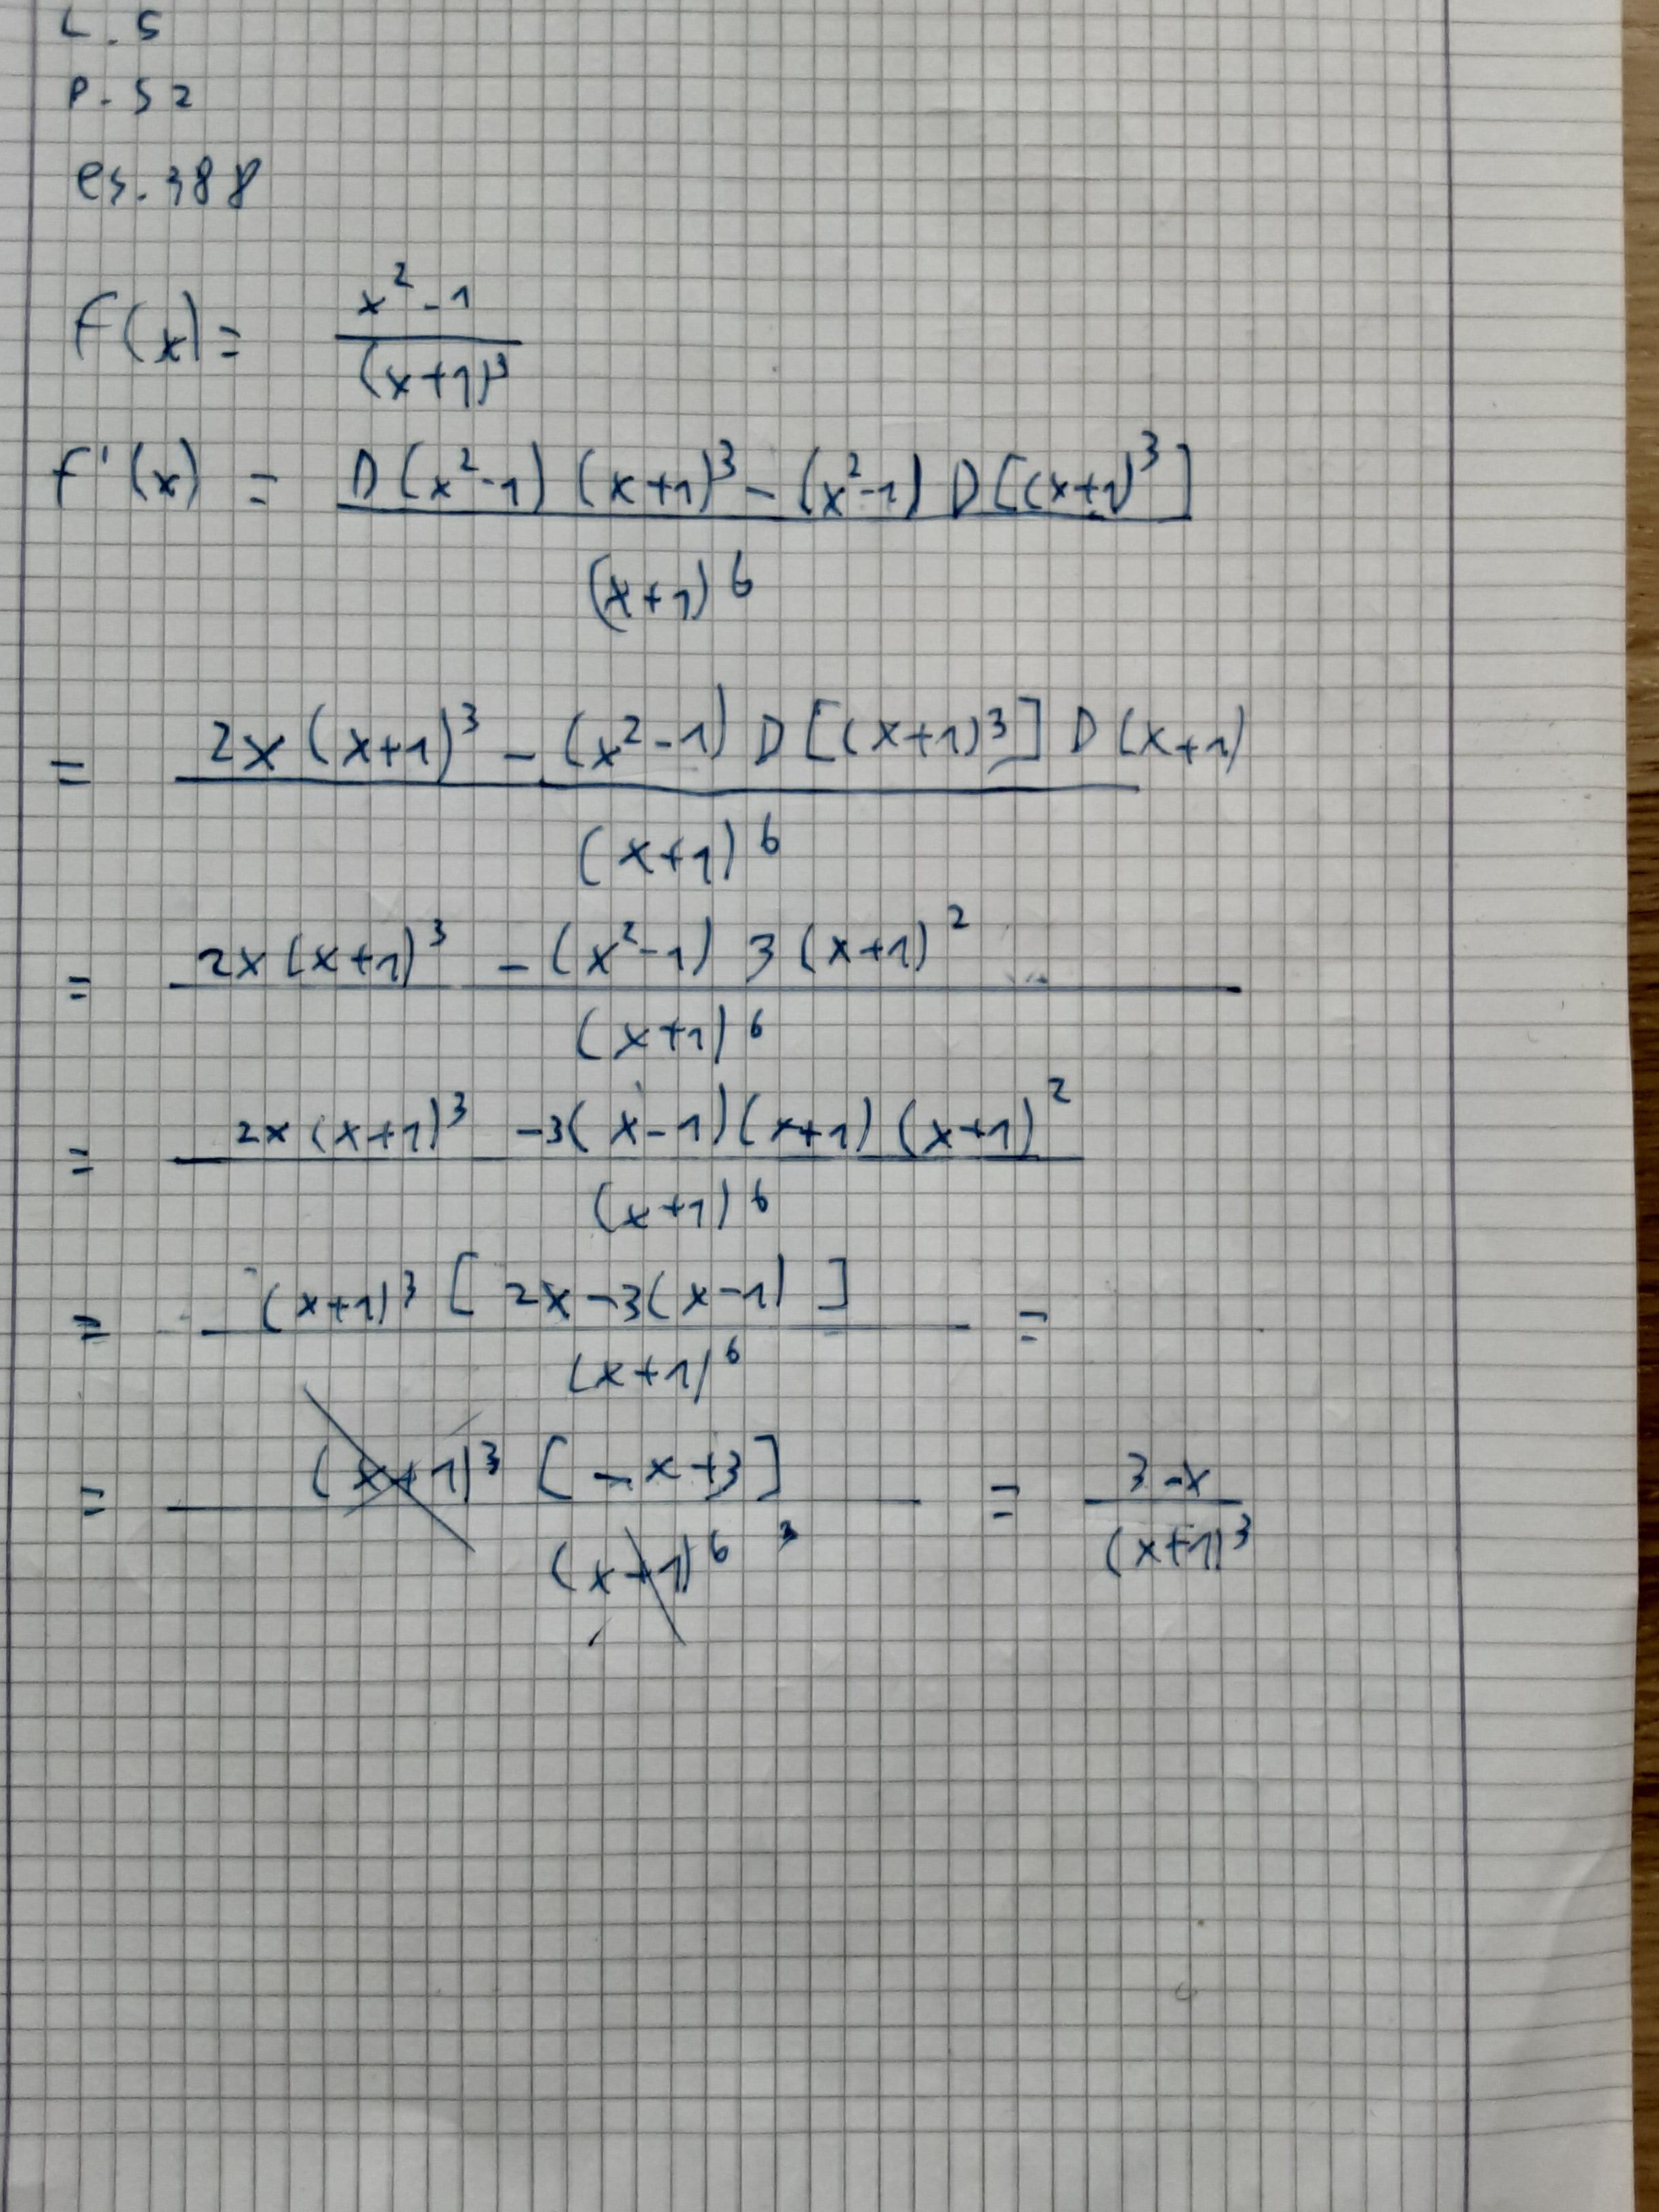 L. 5
P. 52
es. 388
f(x) = (x² - 1) / (x+1)³
f'(x) = (D(x²-1) (x+1)³ - (x²-1) D[(x+1)³]) / (x+1)⁶
= (2x(x+1)³ - (x²-1) D[(x+1)³] D(x+1)) / (x+1)⁶
= (2x(x+1)³ - (x²-1) 3(x+1)²) / (x+1)⁶
= (2x(x+1)³ -3(x-1)(x+1)(x+1)²) / (x+1)⁶
= ((x+1)³ [2x-3(x-1)]) / (x+1)⁶ =
= ((x+1)³ [-x+3]) / (x+1)⁶ ³ = (3-x) / (x+1)³